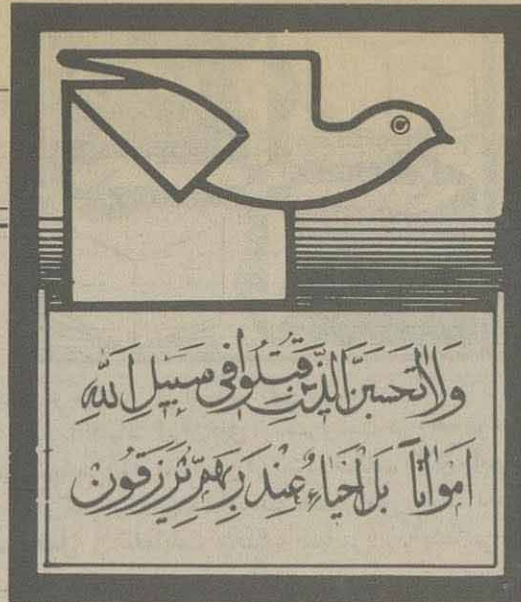 وَلَا تَحْسَبَنَّ الَّذِينَ قُتِلُوا فِی سَبِیلِ اللَّهِ
اَمْوَاتًا بَلْ اَحْیَاءٌ عِنْدَ رَبِّهِمْ یُرْزَقُونَ